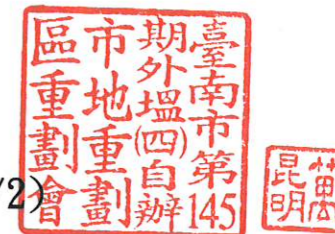 臺南市第145
期外塭(四)自辦
市地重劃
區重劃會
昆明
/2)